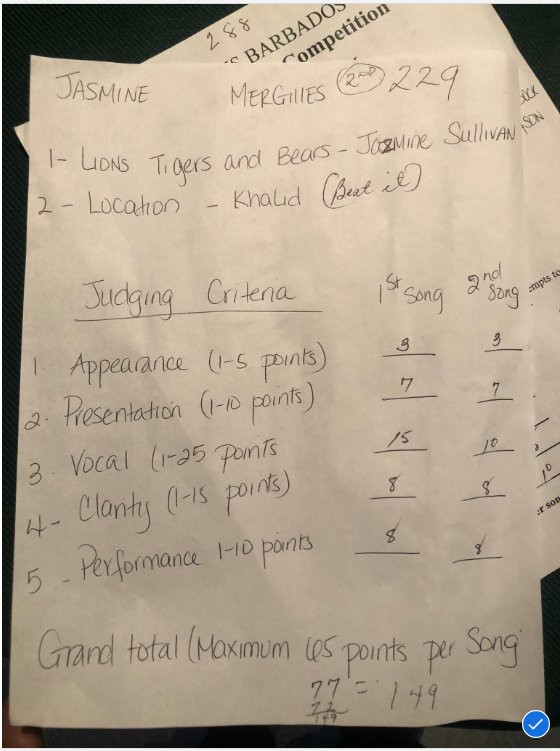 288
S BARBADOS
Competition
JASMINE MERGILLES 2ND 229
1- LIONS Tigers and Bears - JAZMINE SULLIVAN
SON
2 - Location - Khalid (Beat it)
Judging Criteria 1st Song 2nd Song
empts to
1. Appearance (1-5 points) 3 3
2. Presentation (1-10 points) 7 7
3. Vocal (1-25 points 15 10
10
4- Clarity (1-15 points) 8 8
er son
5 - Performance 1-10 points 8 8
Grand total (Maximum 65 points per Song
77 = 149
72
149